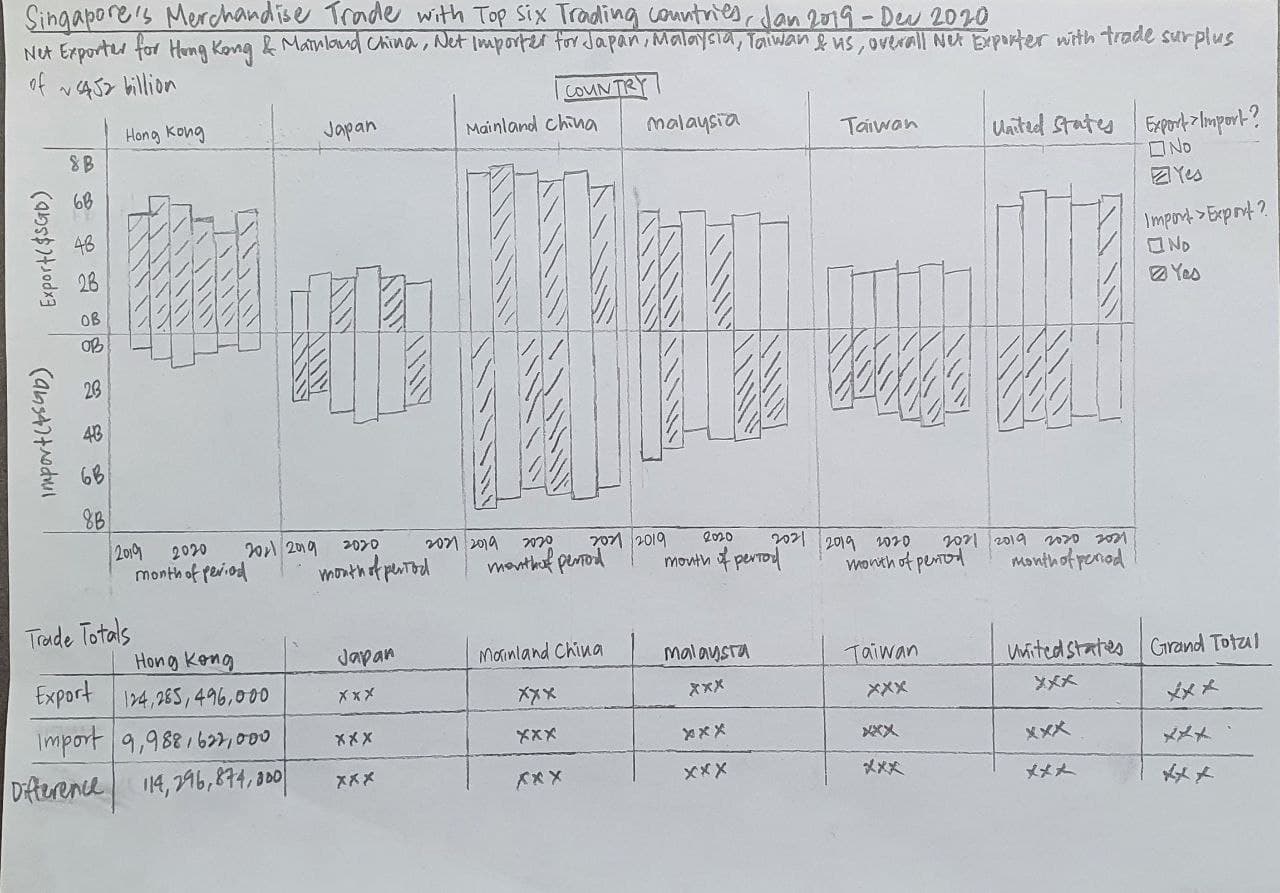 Singapore's Merchandise Trade with Top Six Trading Countries, Jan 2019 - Dec 2020
Net Exporter for Hong Kong & Mainland China, Net Importer for Japan, Malaysia, Taiwan & US, overall Net Exporter with trade surplus
of ~$52 billion
COUNTRY
Hong Kong Japan Mainland China Malaysia Taiwan United States
Export>Import?
No
Yes
Import>Export?
No
Yes
Export($SGD)
8B
6B
4B
2B
0B
Import($SGD)
0B
2B
4B
6B
8B
2019 2020 2021 2019 2020 2021 2019 2020 2021 2019 2020 2021 2019 2020 2021 2019 2020 2021
month of period month of period month of period month of period month of period month of period
Trade Totals
Hong Kong Japan Mainland China Malaysia Taiwan United States Grand Total
Export 124,285,496,000 xxx xxx xxx xxx xxx xxx
Import 9,988,622,000 xxx xxx xxx xxx xxx xxx
Difference 114,296,874,000 xxx xxx xxx xxx xxx xxx